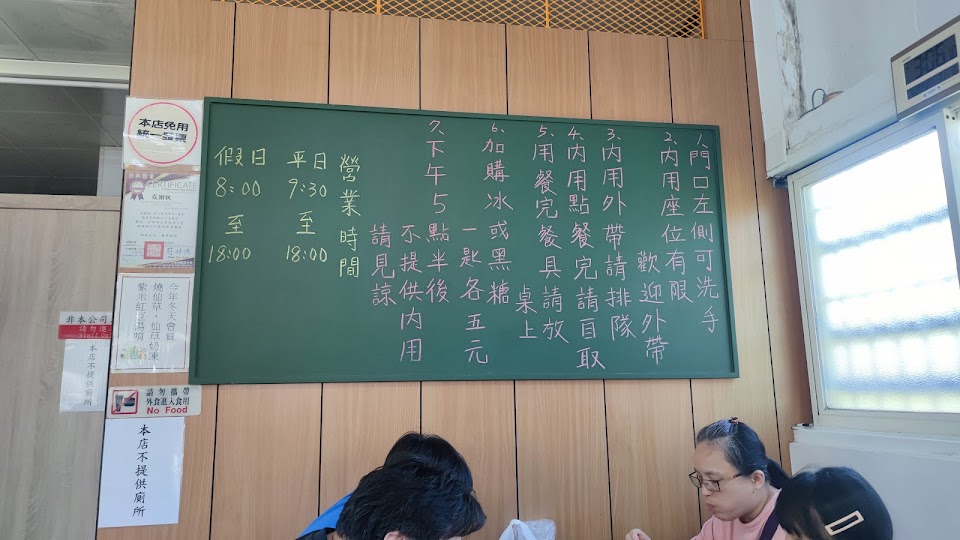 1.門口左側可洗手
2.內用座位有限
歡迎外帶
3.內用外帶請排隊
4.內用點餐完請自取
5.用餐完餐具請放
桌上
6.加購冰或黑糖
一匙各五元
7.下午5點半後
不提供內用
請見諒
營業時間
平日
9:30
至
18:00
假日
8:00
至
18:00
本店免用
統一發票
CERTIFICATE
今年冬天會賣
燒仙草、仙草奶凍
紫米紅豆湯唷
請勿攜帶
外食進入食用
No Food
本店不提供廁所
非本公司
請勿進
本店不提供廁所